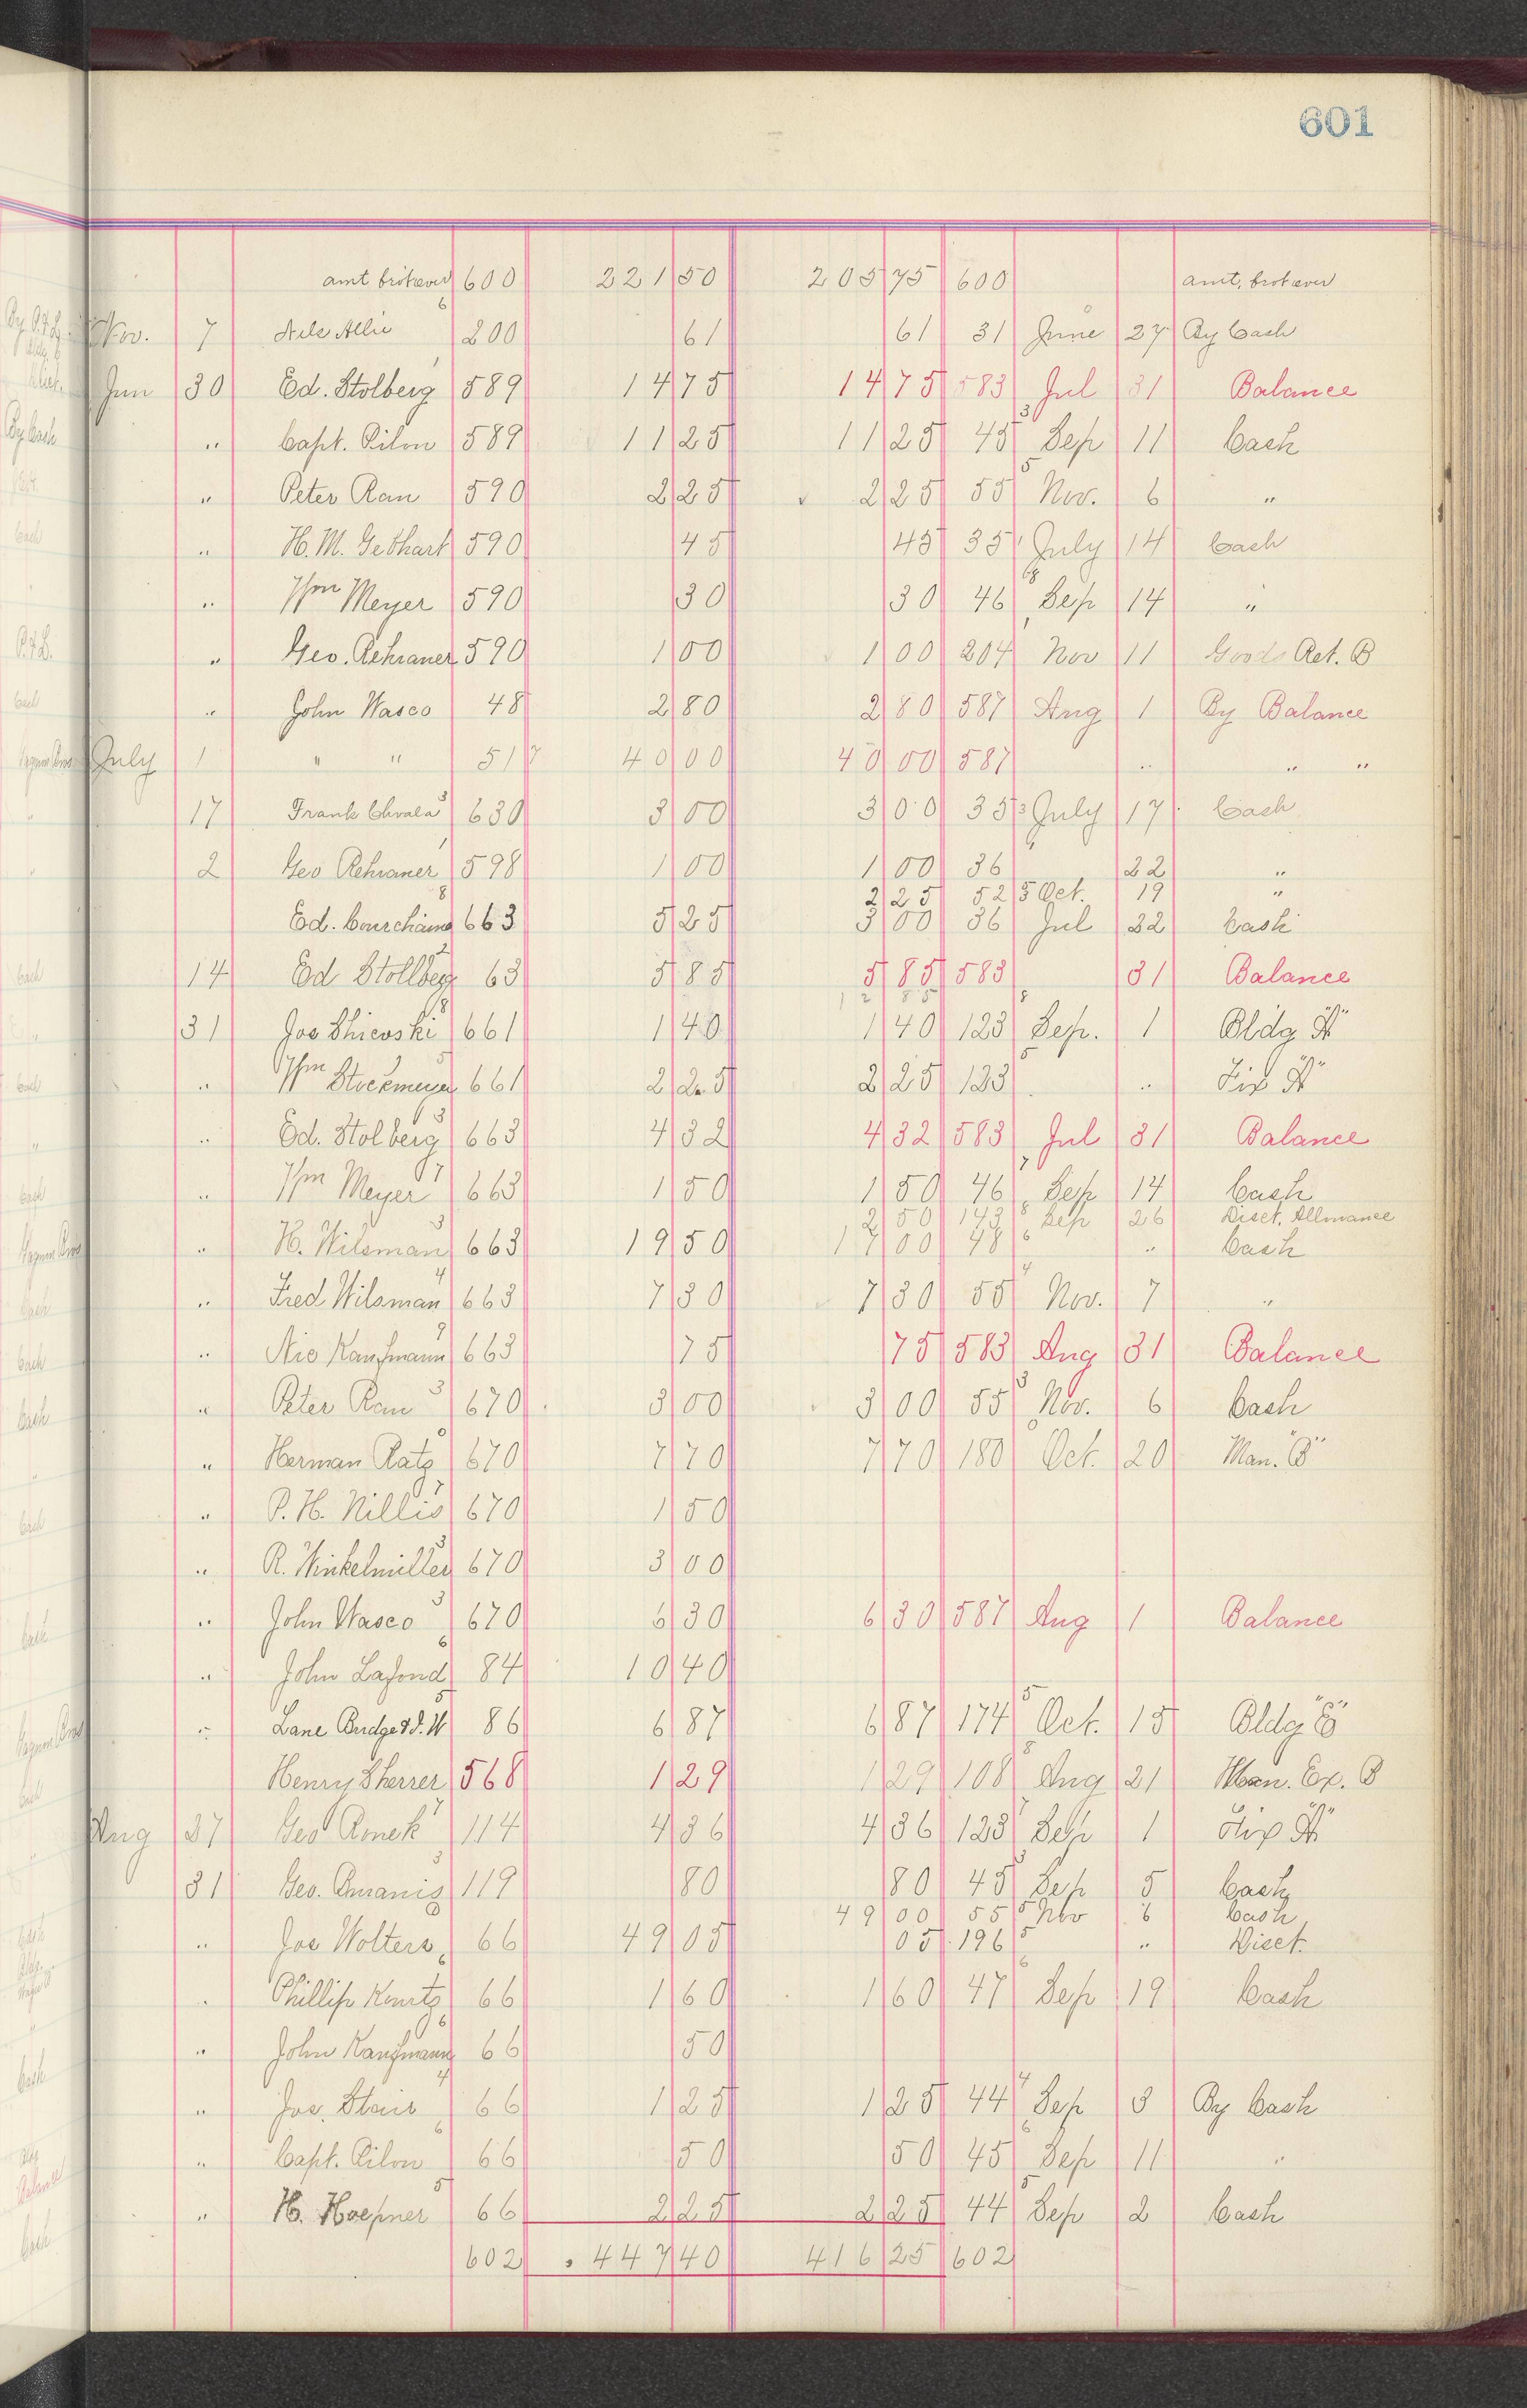 601
amt brot over 600 221 50 205 75 600 amt. brot over
Nov. 7 Nels Allie 200 61 61 31 June 27 By Cash
Jun 30 Ed. Stolberg 589 14 75 14 75 583 Jul 31 Balance
" Capt. Pilon 589 11 25 11 25 45 Sep 11 Cash
" Peter Rau 590 2 25 2 25 55 Nov. 6 "
" H. M. Gebhart 590 45 45 35 July 14 Cash
" Wm Meyer 590 30 30 46 Sep 14 "
" Geo. Rehraner 590 1 00 1 00 204 Nov 11 Goods Ret. B
" John Wasco 48 2 80 2 80 587 Aug 1 By Balance
July 1 " " 517 40 00 40 00 587 " " "
17 Frank Chvala 630 3 00 3 00 35 July 17 Cash
2 Geo Rehraner 598 1 00 1 00 36 22 "
2 25 52 Oct. 19 "
Ed. Courchaine 663 5 25 3 00 36 Jul 22 Cash
14 Ed Stollberg 63 5 85 5 85 583 31 Balance
12 85
31 Jos Shievski 661 1 40 1 40 123 Sep. 1 Bldg "A"
" Wm Stockmeyer 661 2 25 2 25 123 " Fix "A"
" Ed. Stolberg 663 4 32 4 32 583 Jul 31 Balance
" Wm Meyer 663 1 50 1 50 46 Sep 14 Cash
2 50 143 Sep 26 Disct. Allowance
" H. Wilsman 663 19 50 17 00 48 " Cash
" Fred Wilsman 663 7 30 7 30 55 Nov. 7 "
" Nic Kaufmann 663 75 75 583 Aug 31 Balance
" Peter Rau 670 3 00 3 00 55 Nov. 6 Cash
" Herman Ratz 670 7 70 7 70 180 Oct. 20 Man. "B"
" P. H. Nillis 670 1 50
" R. Winkelmiller 670 3 00
" John Wasco 670 6 30 6 30 587 Aug 1 Balance
" John Lafond 84 10 40
" Lane Bridge & I. W 86 6 87 6 87 174 Oct. 15 Bldg "E"
Henry Sherrer 568 1 29 1 29 108 Aug 21 Man. Ex. B
Aug 27 Geo 114 4 36 4 36 123 Sep 1 Fix "A"
31 Geo. 119 80 80 45 Sep 5 Cash
49 00 55 Nov 6 Cash
" Jos Wolters 66 49 05 05 196 " Disct.
" Phillip Kurtz 66 1 60 1 60 47 Sep 19 Cash
" John Kaufmann 66 50
" Jos. Stair 66 1 25 1 25 44 Sep 3 By Cash
" Capt. Pilon 66 50 50 45 Sep 11 "
" H. Hoepner 66 2 25 2 25 44 Sep 2 Cash
602 447 40 416 25 602